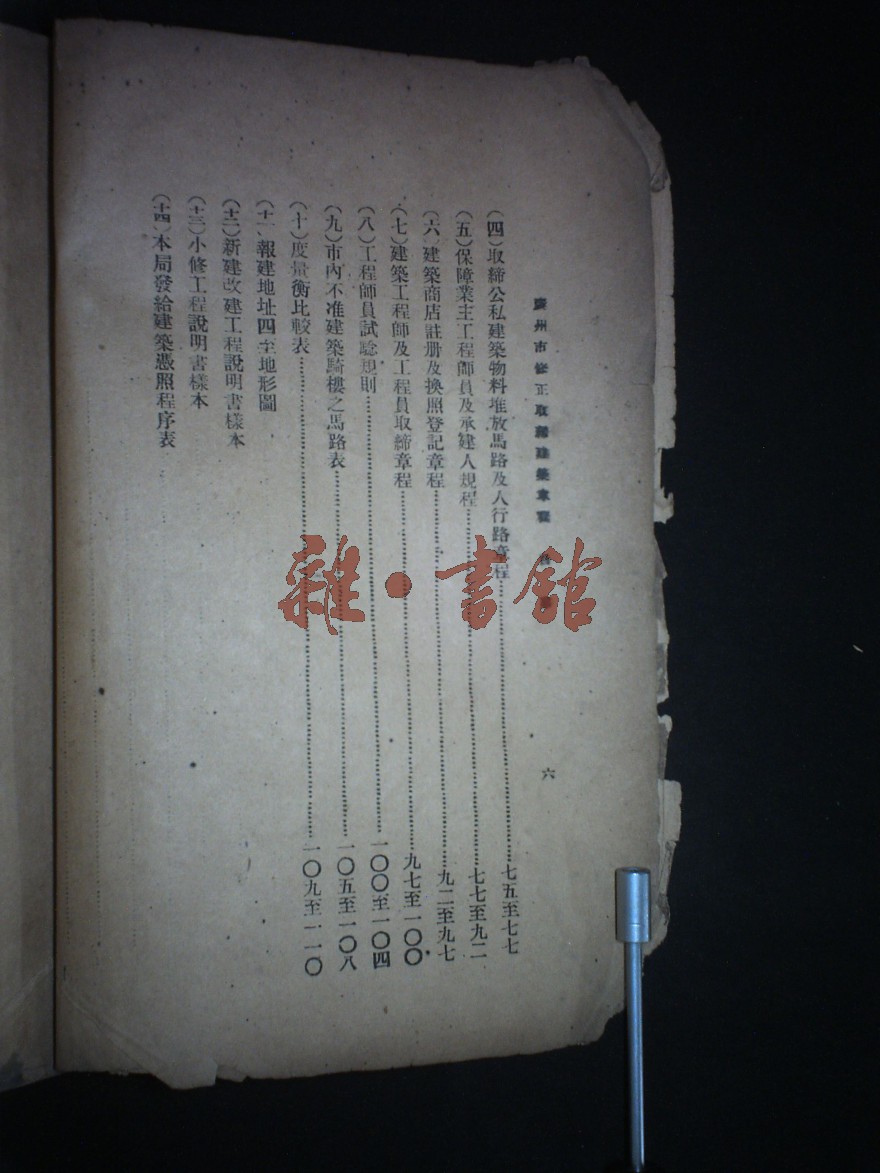 廣州市修正取締建築章程
六
(四)取締公私建築物料堆放馬路及人行路章程……七五至七七
(五)保障業主工程師員及承建人規程……七七至九二
(六)建築商店註册及換照登記章程……九二至九七
(七)建築工程師及工程員取締章程……九七至一〇〇
(八)工程師員試驗規則……一〇〇至一〇四
(九)市內不准建築騎樓之馬路表……一〇五至一〇八
(十)度量衡比較表……一〇九至一一〇
(十一)報建地址四至地形圖
(十二)新建改建工程說明書樣本
(十三)小修工程說明書樣本
(十四)本局發給建築憑照程序表
雜·書館